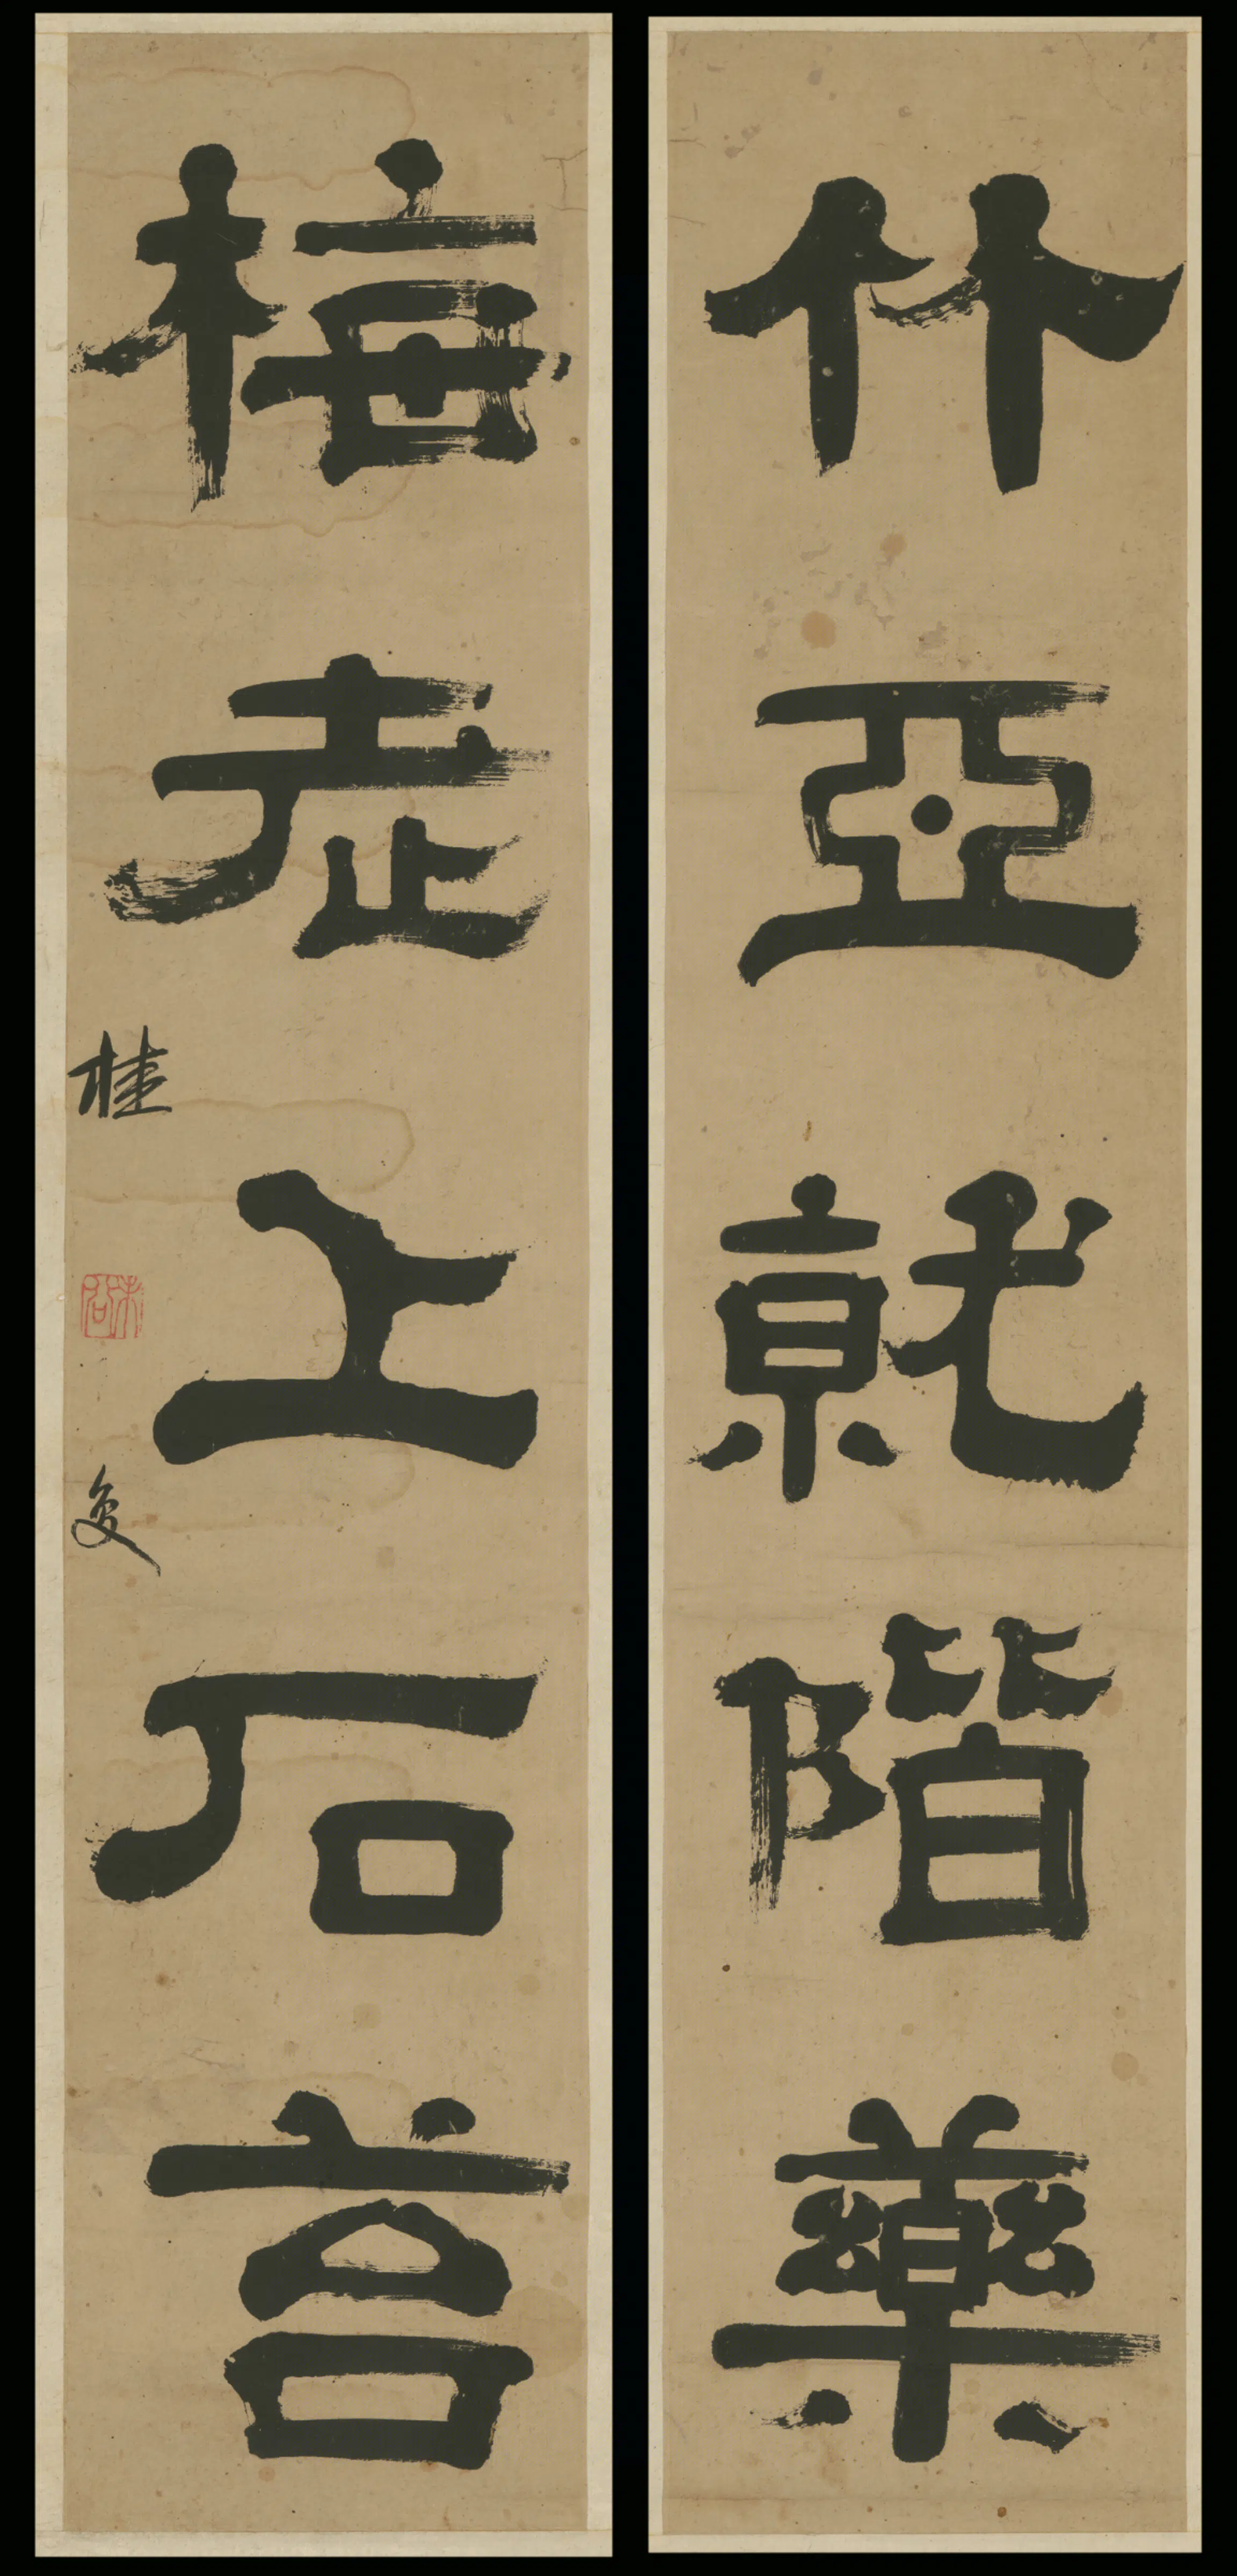 竹亞就階藥
梅老上石苔
桂馥